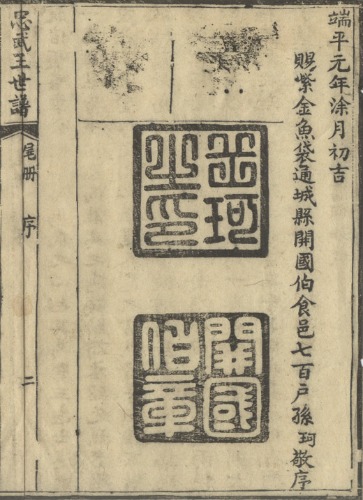 端平元年涂月初吉
賜紫金魚袋通城縣開國伯食邑七百戶孫珂敬序
岳珂之印
開國伯章
忠武王世譜
尾册 序 二